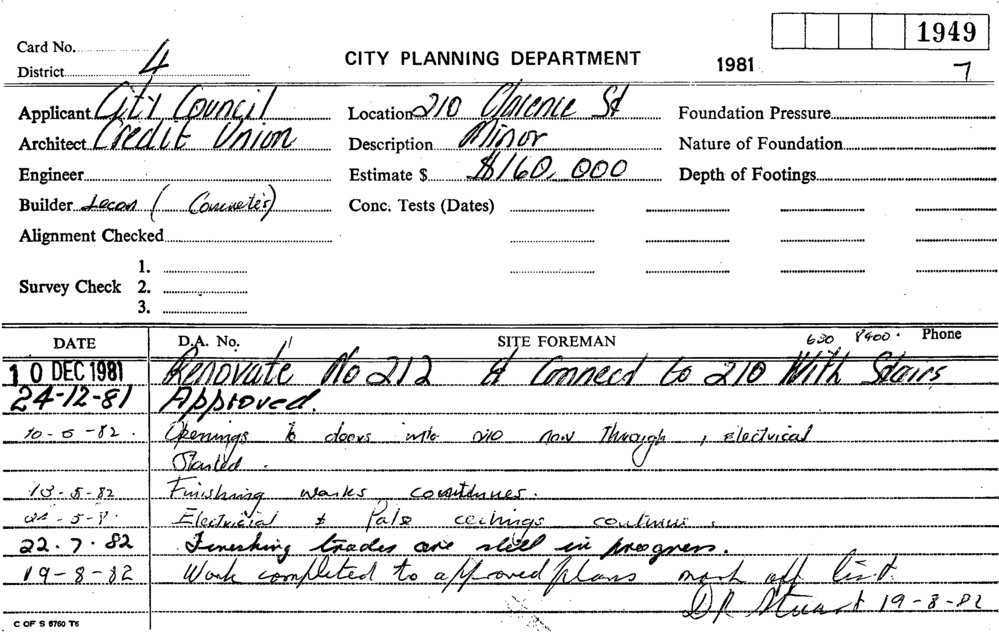 1949
Card No. 4
CITY PLANNING DEPARTMENT
1981
7
District
Applicant City Council
Location 210 Clarence St
Foundation Pressure
Architect Credit Union
Description Minor
Nature of Foundation
Engineer
Estimate $ $160,000
Depth of Footings
Builder Lecon (
Conc. Tests (Dates)
Alignment Checked
1.
Survey Check 2.
3.
DATE
D.A. No.
SITE FOREMAN
630 8900
Phone
10 DEC 1981 Renovate No 212 & Connect to 210 With Stairs
24-12-81 Approved.
10-5-82. Openings to doors into 210 now Through, Electrical
Started.
13-5-82 Finishing works continues.
Electrical & False ceilings continue.
22.7.82 Finishing trades are still in progress.
19-8-82 Work completed to approved plans mark off list.
DR Stuart 19-8-82
C OF S 5760 T6